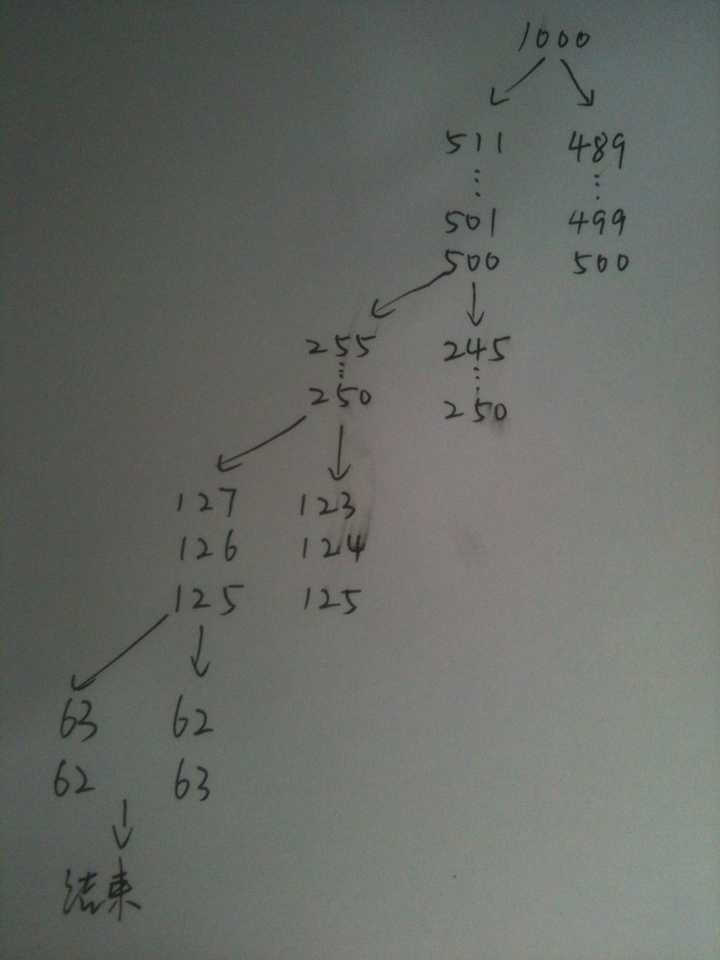 1000
511 489
⋮ ⋮
501 499
500 500
255 245
⋮ ⋮
250 250
127 123
126 124
125 125
63 62
62 63
结束